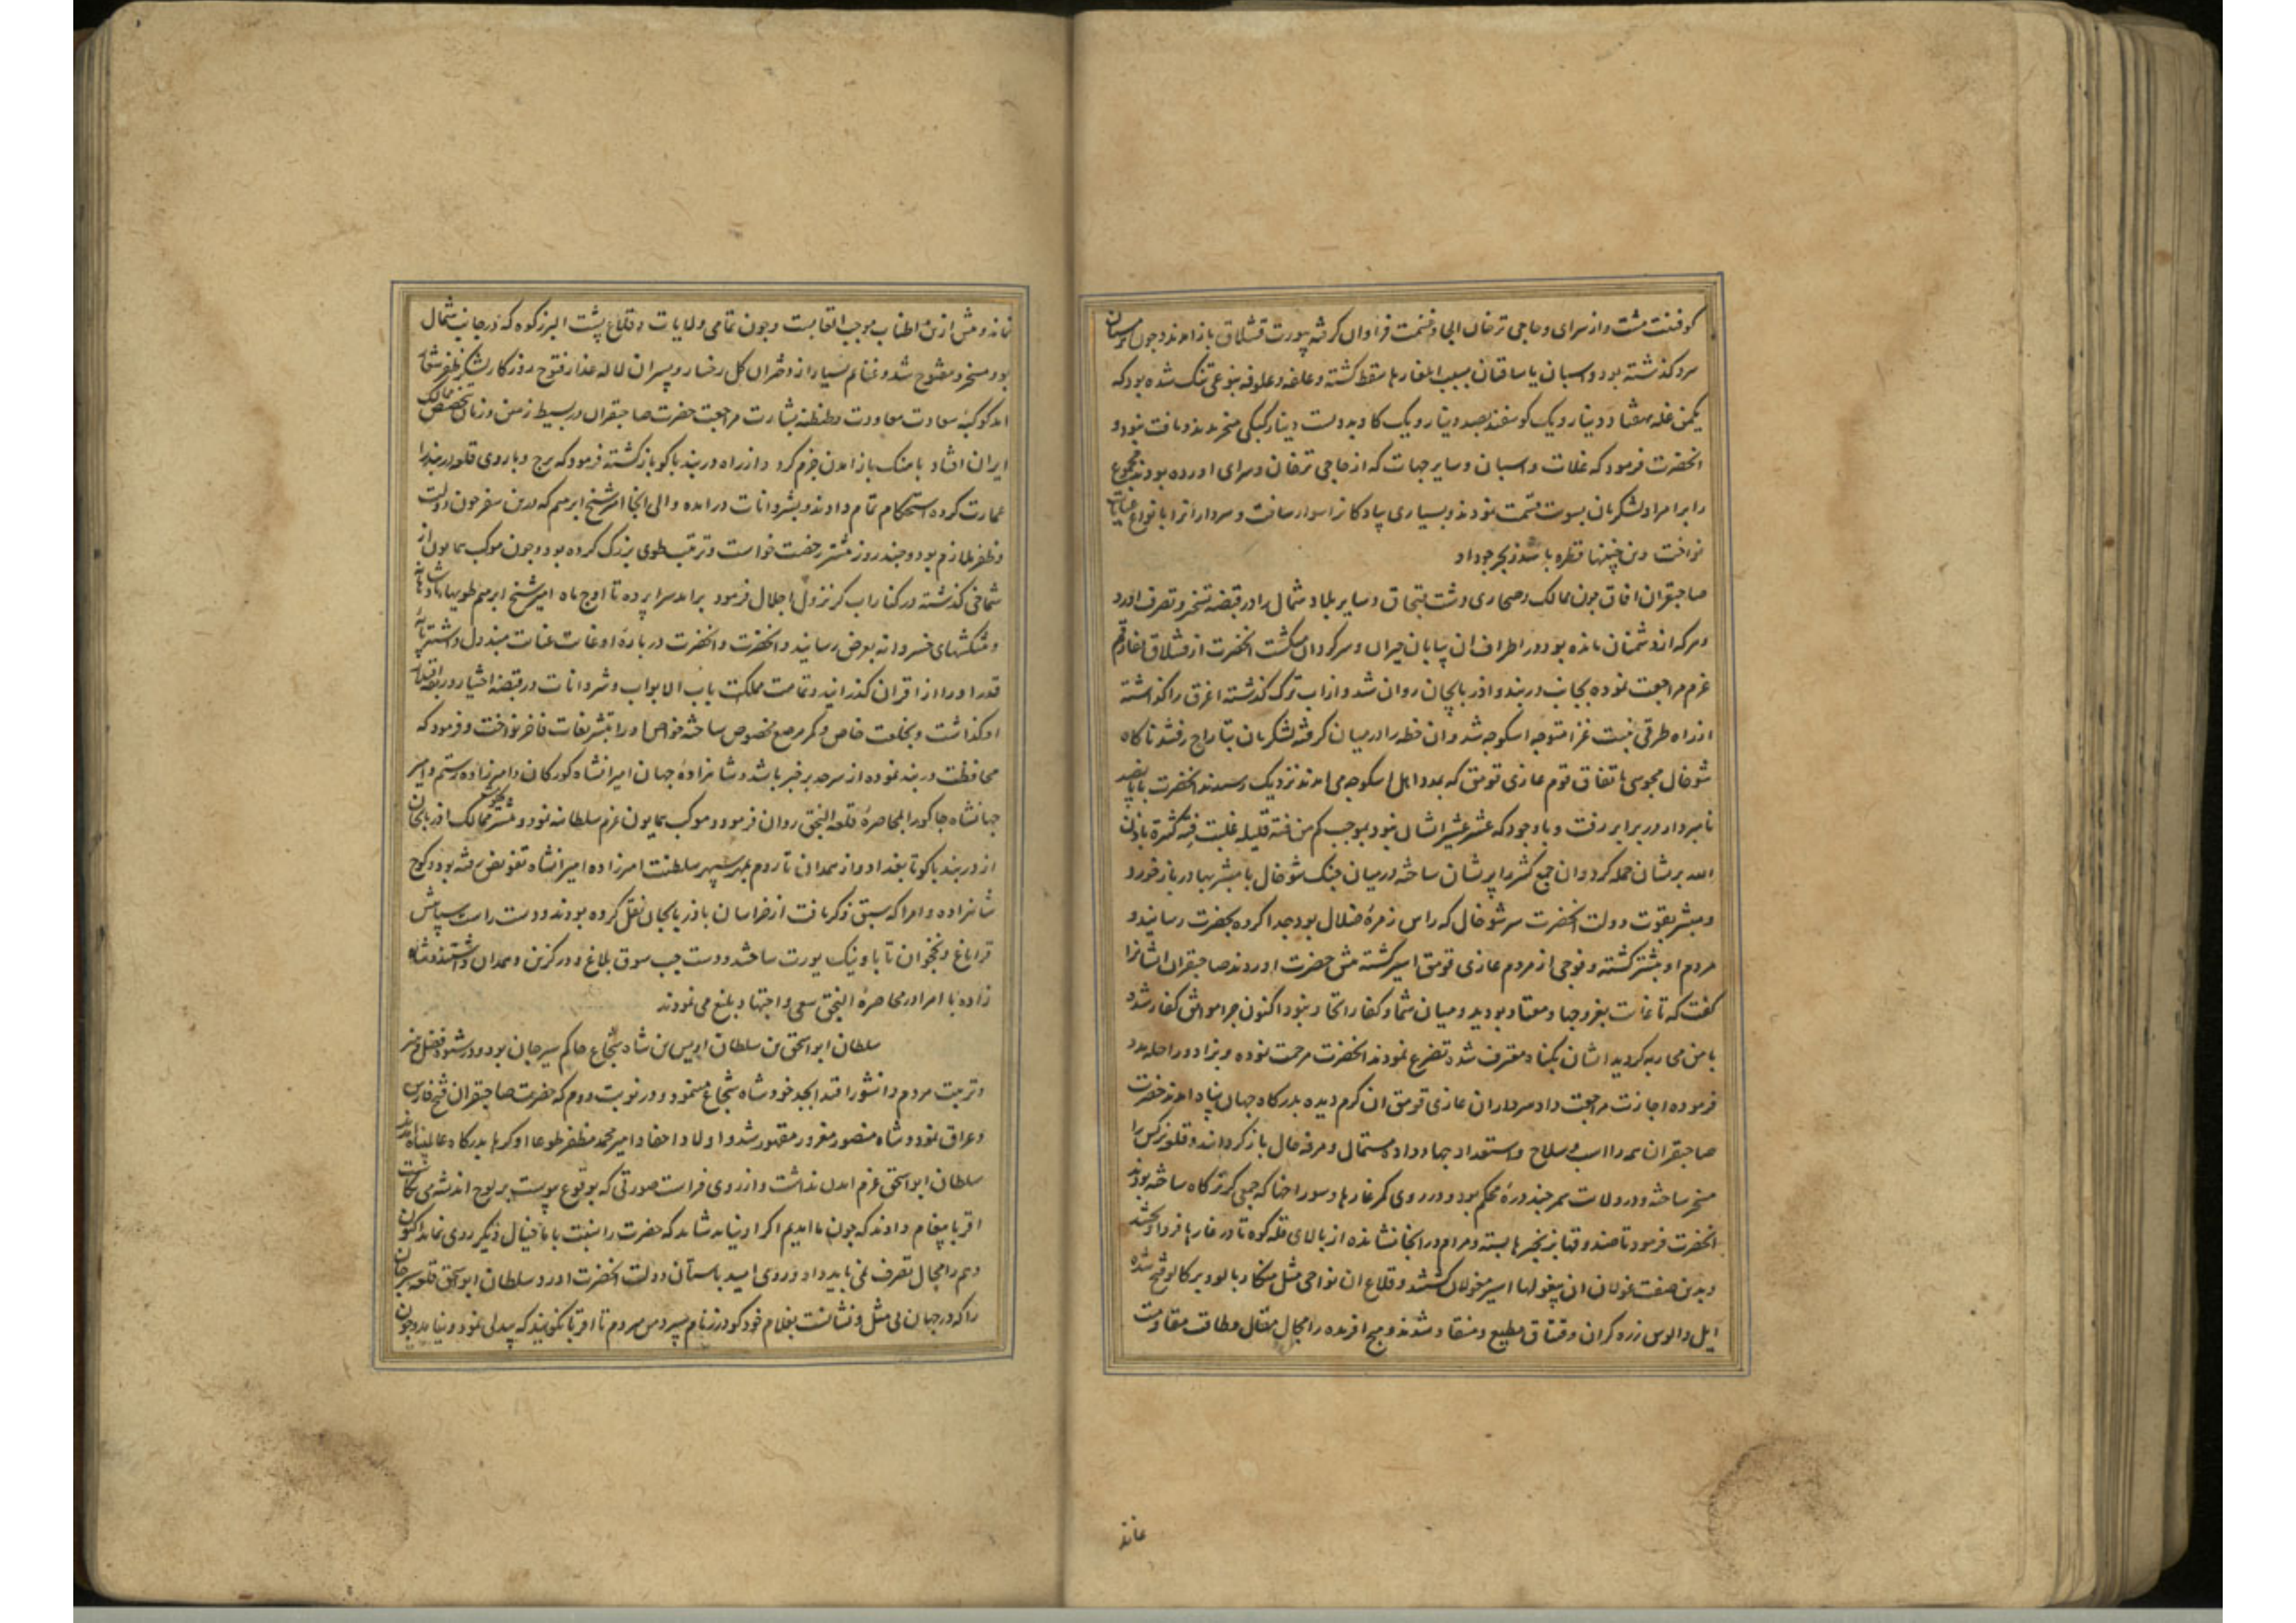 کوفتنت مشت واز سرای وحاجی ترخان الجا وغنیمت فراوان کرفته بیورت قشلاق باز امدند وجون زمستان
سرد کذشته بود واسبان یاساقتان بسبب ایلغارها سقط کشته وعلفه وعلوفه بنوعی تنک شده بود که
یکمن غله بهفتاد دینار ویک کوسفند بصد دینار ویک کاو بدویست دینار کبکی میخریدند ویافت نبود و
انحضرت فرمود که غلات واسبان وسایر جهات که از حاجی ترخان وسرای اورده بودند مجموع
را بر امرا ولشکریان بسویت قسمت نمودند وبسیاری پیادکانرا سوار ساخت وسردارانرا بانواع عنایات
نواخت وین چنینها قطره باشد ز بحر جود او
صاحبقران افاق چون ممالک وصحاری دشت قبچاق وسایر بلاد شمال را در قبضه تسخیر وتصرف اورد
وهرکه از دشمنان مانده بود در اطراف ان بیابان حیران وسرکردان میکشت انحضرت از قشلاق
عزم مراجعت نموده بجانب دربند واذربایجان روان شد واز اب ترک کذشته اغرق را کذاشته
از راه طرقی بنیت غزا متوجه اسکوجه شد وان خطه را در میان کرفته لشکریان بتاراج رفتند ناکاه
شوخال مجوسی باتفاق قوم غازی قومق که بمدد اهل اسکوجه می امدند نزدیک رسیدند انحضرت با پانصد
نامبردار در برابر رفت وباوجود که عشر عشیر ایشان نبود بموجب کم من فئة قلیله غلبت فئة کثیرة باذن
الله بریشان حمله کرد وان جمع کثیر را پریشان ساخته در میان جنک شوخال با مبشر بهادر باز خورد
ومبشر بقوت دولت انحضرت سر شوخال که راس زمرهٔ ضلال بود جدا کرده بحضرت رسانید و
مردم او بیشتر کشته وفوجی از مردم غازی قومق اسیر کشته پیش حضرت اوردند صاحبقران ایشانرا
کفت که تا غایت بغزو جهاد معتاد بودید ومیان شما وکفار اتحاد نبود اکنون چرا موافق کفار شده
با من محاربه کردید ایشان بکناه معترف شده تضرع نمودند انحضرت مرحمت نموده وبزاد وراحله مدد
فرموده اجازت مراجعت داد سرداران غازی قومق ان کرم دیده بدرکاه جهان پناه امدند حضرت
صاحبقران همه را اسب وسلاح واستعداد جهاد داده مستمال ومرفه حال باز کردانید وقلعه نرکس را
مسخر ساخته ودر ولایت سمر چند درهٔ محکم بود ودر روی کمر غارها وسوراخها که جیبی کرترکاه ساخته بودند
انحضرت فرمود تا صندوقها بزنجیرها بسته ومردم در انجا نشانده از بالای قله کوه تا در غارها فرو داوردند
وبدین صفت غولان ان بیغولها اسیر مغولان کشتند وقلاع ان نواحی مثل میکا وبالو ودیرکالو فتح شده
ایل والوس زره کران وقیتاق مطیع ومنقاد شدند وهیچ افریده را مجال مقال وطاقت مقاومت
نماند
نماند وبیش ازین اطناب موجب اتعابست وچون تمامی ولایات وقلاع پشت البرزکوه که در جانب شمال
بود مسخر ومفتوح شد وغنایم بسیار از دختران کل رخسار وپسران لاله عذار فتوح روزکار لشکر ظفر شعار
امد کوکبهٔ سعادت معاودت وطنطنه بشارت مراجعت حضرت صاحبقران در بسیط زمین وزمان تخصیص ممالک
ایران افتاد با منک باز امدن جزم کرد واز راه دربند باکو باز کشته فرمود که برج وباروی قلعه دربند را
عمارت کرده استحکام تمام دادند وبشروانات درامده والی انجا امیر شیخ ابرهیم که درین سفر چون دولت
وظفر ملازم بود وچند روز پیشتر رخصت خواست وترتیب طوی بزرک کرده بود وچون موکب همایون از
شماخی کذشته در کنار اب کر نزول اجلال فرمود برامد سراپرده تا اوج ماه امیر شیخ ابرهیم طویهای پادشاهانه
وپیشکشهای خسروانه بعرض رسانید وانحضرت وانحضرت در بارهٔ او غایت عنایت مبذول داشته پایه
قدر او را از اقران کذرانید وتمامت مملکت باب الابواب وشروانات در قبضه اختیار ورابطه اقتدار
او کذاشت وبخلعت خاص وکمر مرصع مخصوص ساخته خواص او را بتشریفات فاخر نواخت وفرمود که
محافظت دربند نموده از سرحد بر خبر باشد وشاهزادهٔ جهان امیرانشاه کورکان وامیرزاده رستم وامیر
جهانشاه جاکو را بمحاصرهٔ قلعه النجق روان فرمود وموکب همایون عزم سلطانیه نمود وپیشتر ممالک اذربایجان
از دربند باکو تا بغداد واز همدان تا روم بمهر سپهر سلطنت امیرزاده امیرانشاه تفویض رفته بود وکوچ
شاهزاده وامرا که سبق ذکر یافت از خراسان باذربایجان نقل کرده بودند ودست راست سپاهش
قراباغ ونخجوان تا باونیک یورت ساختند ودست چپ سوق بلاغ ودرکزین وهمدان داشتند وشاه
زاده با امرا در محاصرهٔ النجق سعی واجتهاد بلیغ می نمودند
سلطان ابو اسحق بن سلطان اویس بن شاه شجاع حاکم سیرجان بود ودر شیوهٔ فضل وهنر
وتربیت مردم دانشور اقتدا بجد خود شاه شجاع مینمود ودر نوبت دوم که حضرت صاحبقران فتح فارس
وعراق نمود وشاه منصور مغرور مقهور شد واولاد واحفاد امیر محمد مظفر طوعا او کرها بدرکاه عالم پناه امدند
سلطان ابو اسحق عزم امدن نداشت واز روی فراست صورتی که بوقوع پیوست بر لوح اندیشه می نکاشت
اقربا پیغام دادند که چون ما امدیم اکر او نیاید شاید که حضرت را نسبت با ما خیال دیکر روی نماید اکنون
وهم را مجال تصرف نمی باید داد وروی امید باستان دولت انحضرت اورد وسلطان ابو اسحق قلعه سیرجان
را که در جهان بی مثل ونشانست بغلام خود کودرز نام سپرد من میروم تا اقربا نکویند که بیدلی نمود ونیامد وچون